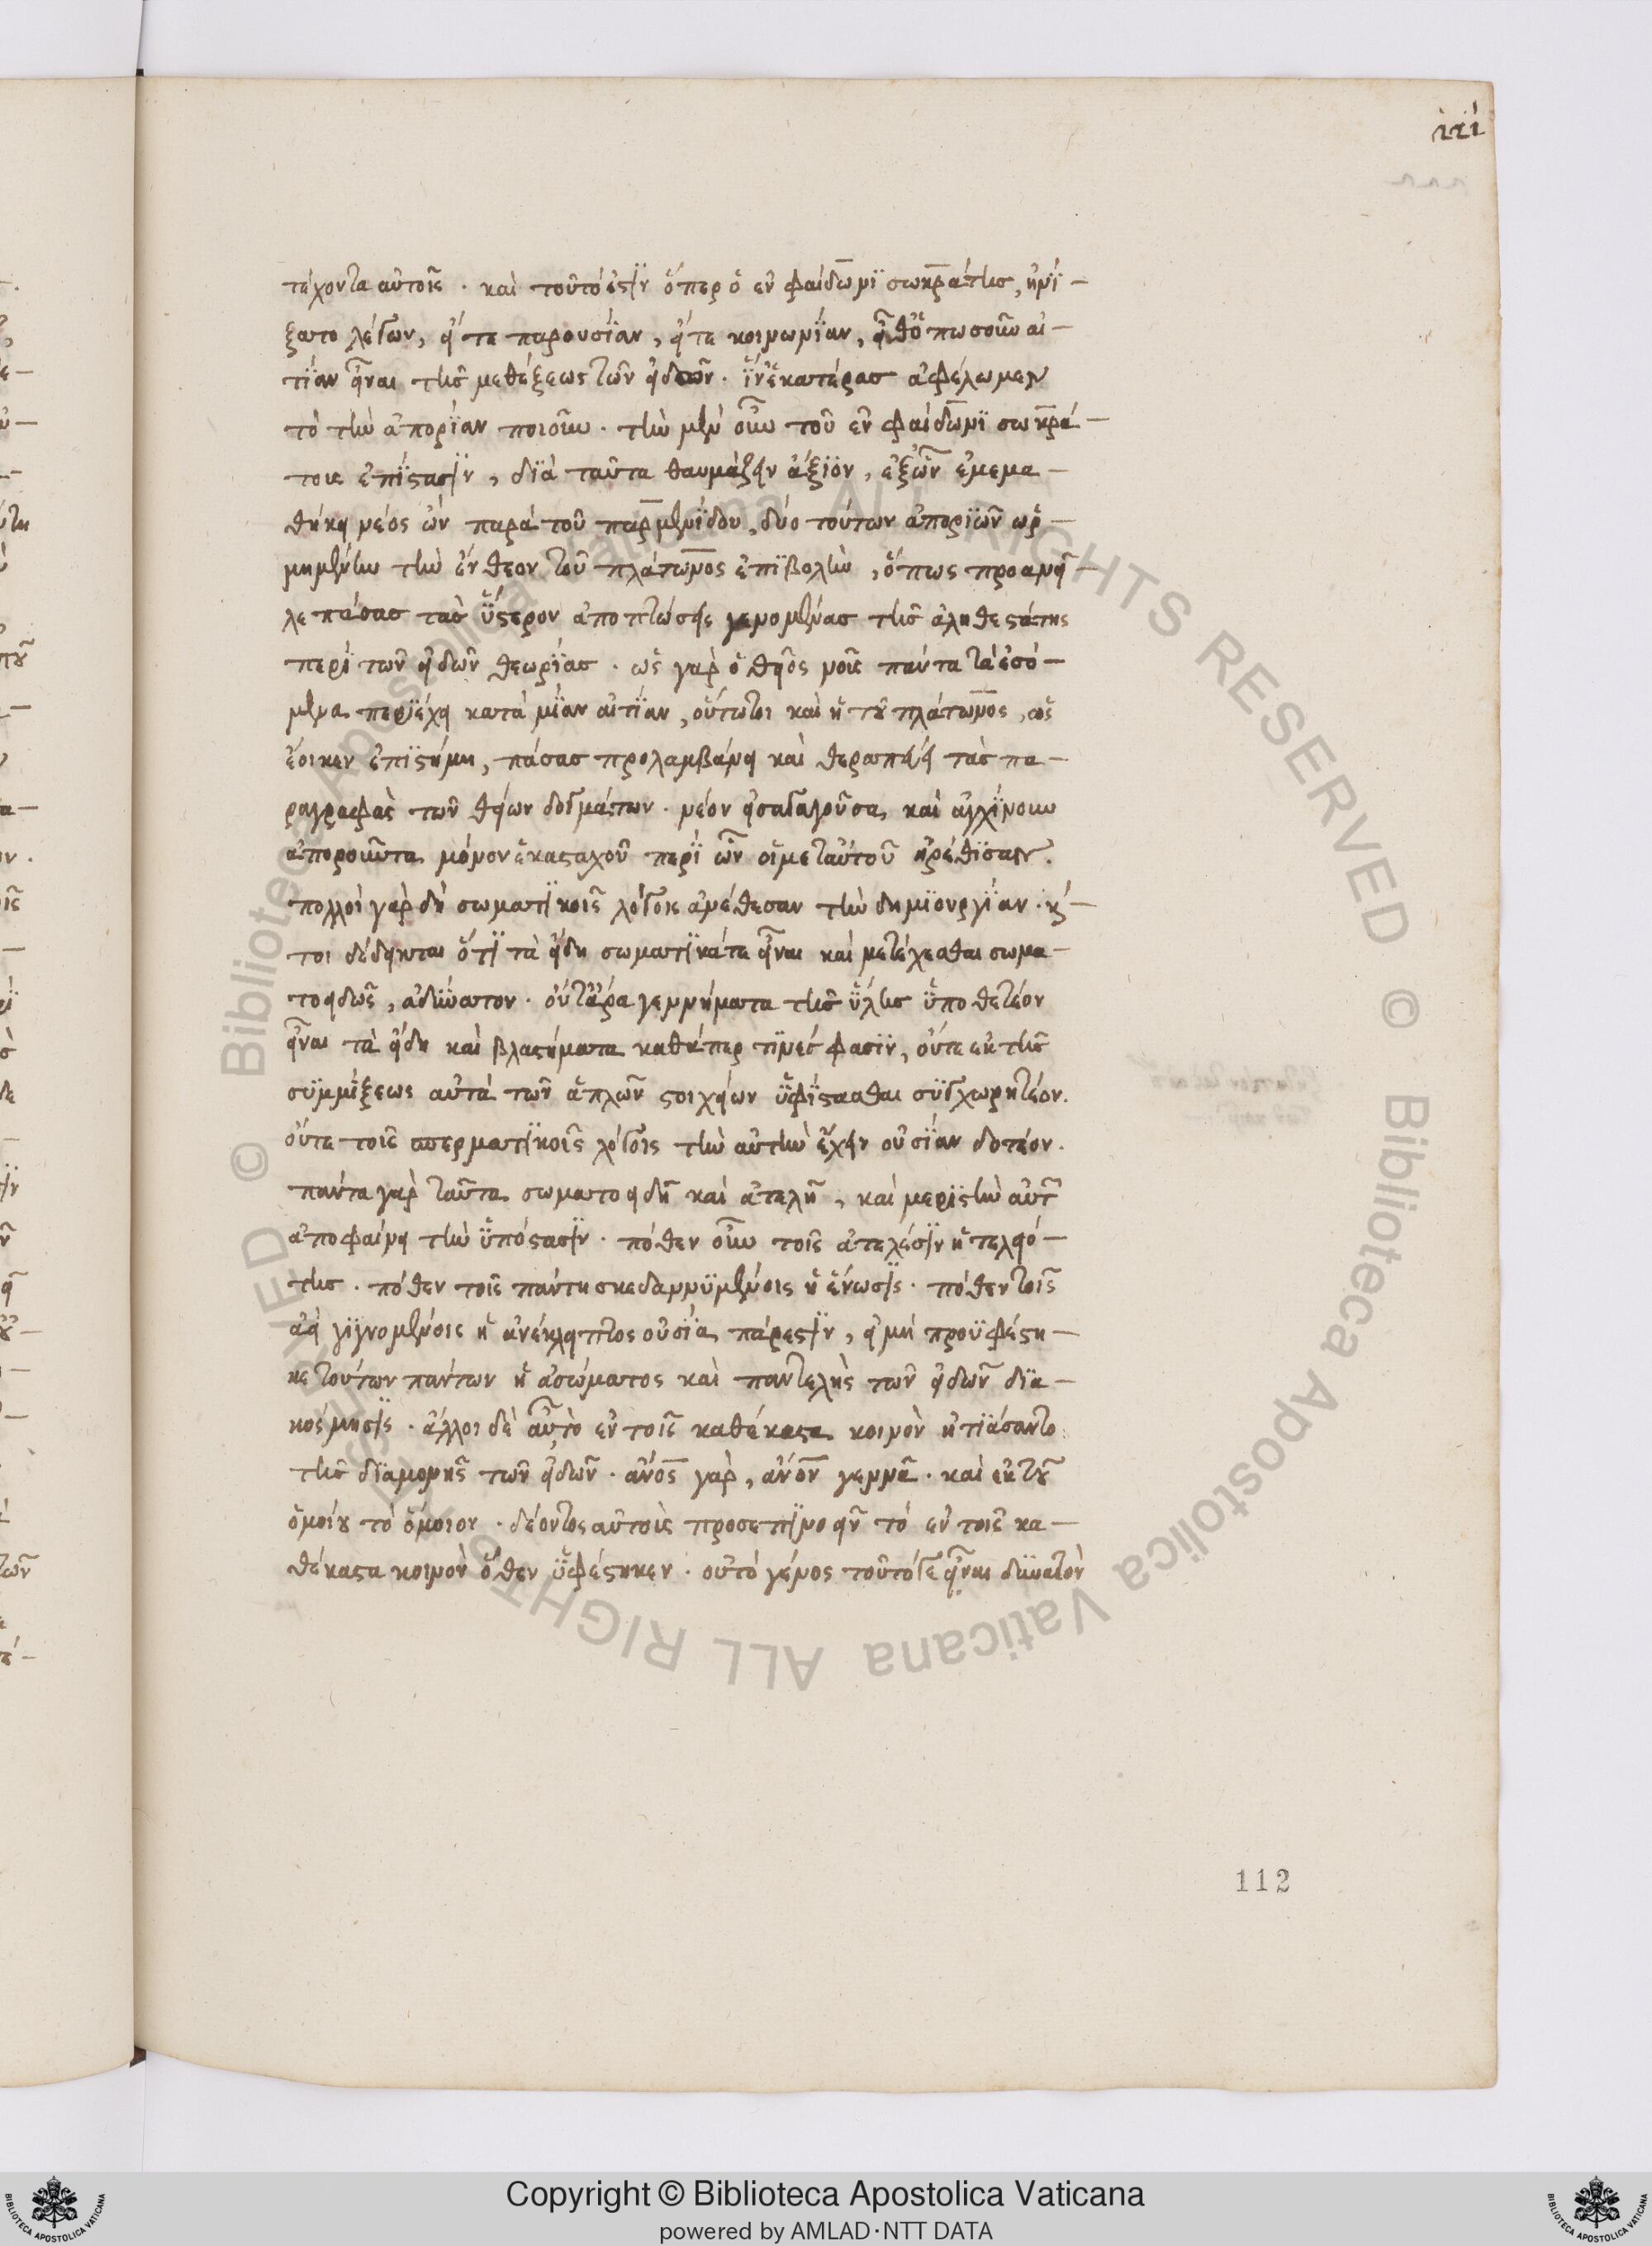 111
τέχοντα αὐτοῖς · καὶ τοῦτό ἐστιν ὅπερ ὁ ἐν φαίδωνι σωκράτης, ἠνί-
ξατο λέγων, εἴτε παρουσίαν, εἴτε κοινωνίαν, εἴθ' ὁπωσοῦν αἰ-
τίαν εἶναι τῆς μεθέξεως τῶν εἰδῶν · ἵν' ἑκατέρας ἀφέλωμεν
τὸ τὴν ἀπορίαν ποιοῦν · τὴν μὲν οὖν τοῦ ἐν φαίδωνι σωκρά-
τους ἐπίστασιν, διὰ ταῦτα θαυμάζειν ἄξιον, ἐξ ὧν ἐμεμα-
θήκει νέος ὢν παρὰ τοῦ παρμενίδου, δύο τούτων ἀποριῶν ὡρ-
μημένην τὴν ἔνθεον τοῦ πλάτωνος ἐπιβολὴν, ὅπως προανεῖ-
λε πάσας τὰς ὕστερον ἀποπτώσεις γενομένας τῆς ἀληθεστάτης
περὶ τῶν εἰδῶν θεωρίας · ὡς γὰρ ὁ θεῖος νοῦς πάντα τὰ ἐσό-
μενα περιέχει κατὰ μίαν αἰτίαν, οὕτωτοι καὶ ἡ τοῦ πλάτωνος, ὡς
ἔοικεν ἐπιστήμη, πάσας προλαμβάνει καὶ θεραπεύει τὰς πα-
ραγραφὰς τῶν θείων δογμάτων · νέον εἰσαγαγοῦσα καὶ ἀγχίνουν
ἀποροῦντα μόνον ἑκασταχοῦ περὶ ὧν οἱ μετ' αὐτοῦ ἠρέθισαν.
πολλοὶ γὰρ δὴ σωματικοῖς λόγοις ἀνέθεσαν τὴν δημιουργίαν · καί-
τοι δέδεικται ὅτι τὰ εἴδη σωματικά τε εἶναι καὶ μετέχεσθαι σωμα-
τοειδῶς, ἀδύνατον · οὔτ' ἄρα γεννήματα τῆς ὕλης ὑποθετέον
εἶναι τὰ εἴδη καὶ βλαστήματα καθάπερ τινές φασιν, οὔτε ἐκ τῆς
συμμίξεως αὐτὰ τῶν ἁπλῶν στοιχείων ὑφίστασθαι συγχωρητέον.
οὔτε τοῖς σπερματικοῖς λόγοις τὴν αὐτὴν ἔχειν οὐσίαν δοτέον.
πάντα γὰρ ταῦτα σωματοειδῆ καὶ ἀτελῆ, καὶ μεριστὴν αὐτῶν
ἀποφαίνει τὴν ὑπόστασιν · πόθεν οὖν τοῖς ἀτελέσιν ἡ τελειό-
της · πόθεν τοῖς πάντη σκεδαννυμένοις ἡ ἕνωσις · πόθεν τοῖς
ἀεὶ γιγνομένοις ἡ ἀνέκλειπτος οὐσία πάρεστιν, εἰ μὴ προϋφέστη-
κε τούτων πάντων ἡ ἀσώματος καὶ παντελὴς τῶν εἰδῶν δια-
κόσμησις · ἄλλοι δὲ αὖ τὸ ἐν τοῖς καθέκαστα κοινὸν ᾐτιάσαντο
τῆς διαμονῆς τῶν εἰδῶν · ἄνος γὰρ, ἄνον γεννᾶ · καὶ ἐκ τοῦ
ὁμοίου τὸ ὅμοιον · δέοντος αὐτοὺς προσεπινοεῖν τὸ ἐν τοῖς κα-
θέκαστα κοινὸν ὅθεν ὑφέστηκεν · οὐ τὸ γένος τοῦτό γε εἶναι δυνατὸν
112